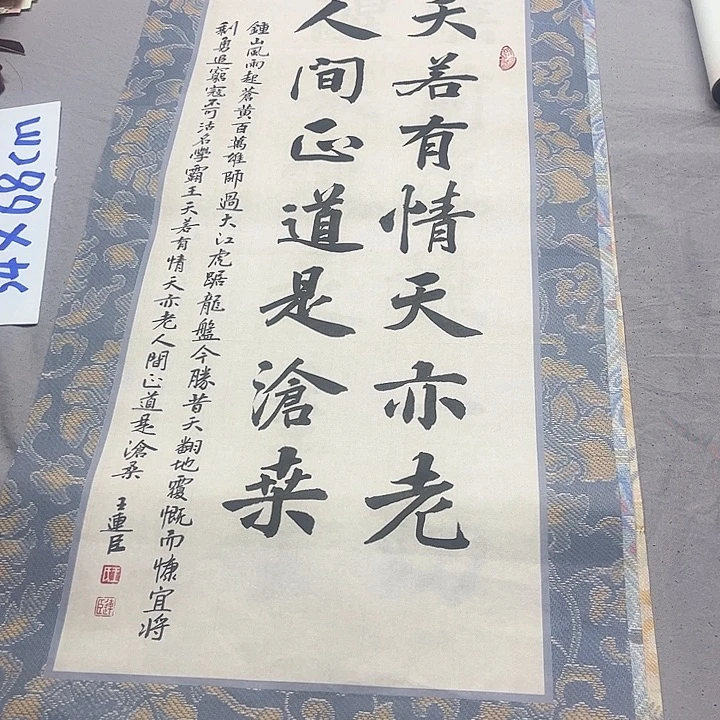 天若有情天亦老
人間正道是滄桑
鍾山風雨起蒼黃百萬雄師過大江虎踞龍盤今勝昔天翻地覆慨而慷宜將
剩勇追窮寇不可沽名學霸王天若有情天亦老人間正道是滄桑
王連臣